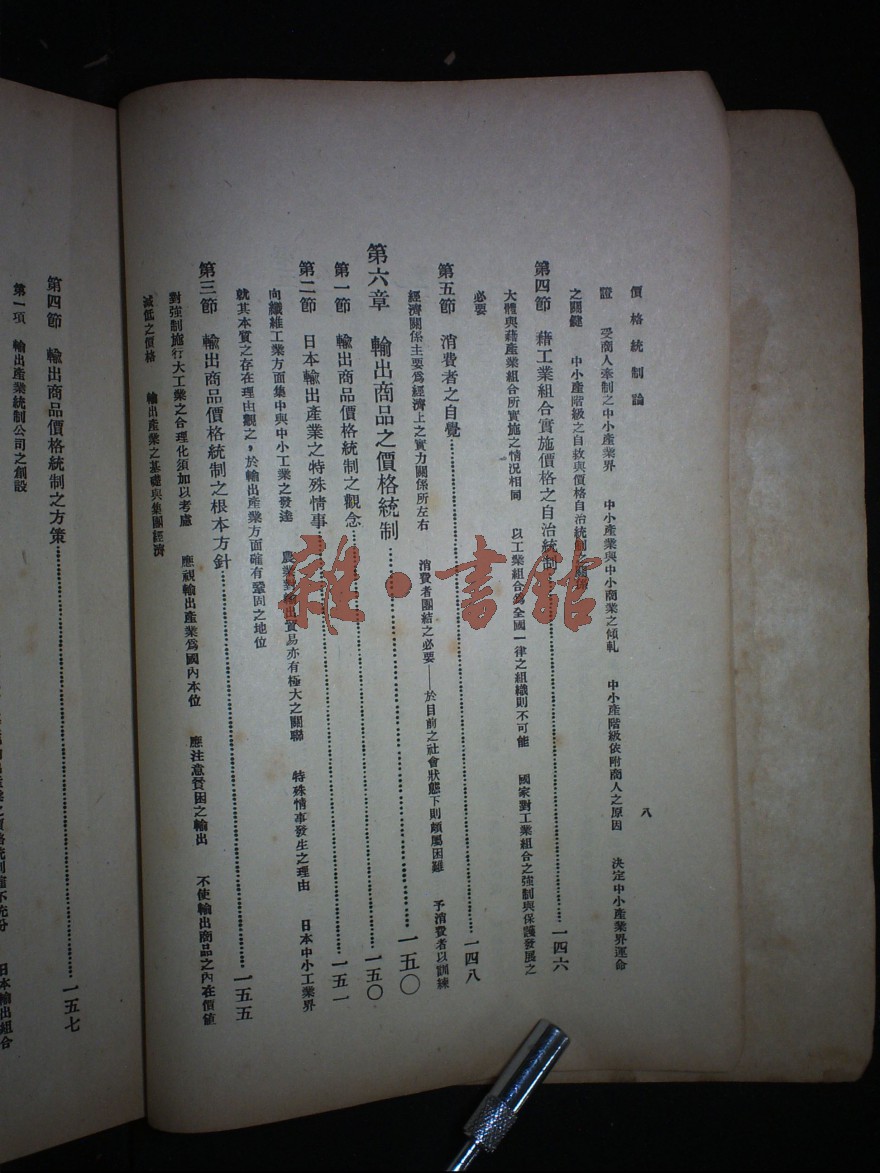 價格統制論
八
證　受商人牽制之中小產業界　中小產業與中小商業之傾軋　中小產階級依附商人之原因　決定中小產業界運命
之關健　中小產階級之自救與價格自治統制之關係
第四節　藉工業組合實施價格之自治統制…………一四六
大體與藉產業組合所實施之情況相同　以工業組合爲全國一律之組織則不可能　國家對工業組合之強制與保護發展之
必要
第五節　消費者之自覺…………一四八
經濟關係主要爲經濟上之實力關係所左右　消費者團結之必要——於目前之社會狀態下則頗屬困難　予消費者以訓練
第六章　輸出商品之價格統制…………一五〇
第一節　輸出商品價格統制之觀念…………一五〇
第二節　日本輸出產業之特殊情事…………一五一
向纖維工業方面集中與中小工業之發達　農業對輸出貿易亦有極大之關聯　特殊情事發生之理由　日本中小工業界
就其本質之存在理由觀之，於輸出產業方面確有鞏固之地位
第三節　輸出商品價格統制之根本方針…………一五五
對強制施行大工業之合理化須加以考慮　應視輸出產業爲國內本位　應注意貧困之輸出　不使輸出商品之內在價值
減低之價格　輸出產業之基礎與集團經濟
第四節　輸出商品價格統制之方策…………一五七
第一項　輸出產業統制公司之創設
之價格統制確不充分　日本輸出組合
雜·書館